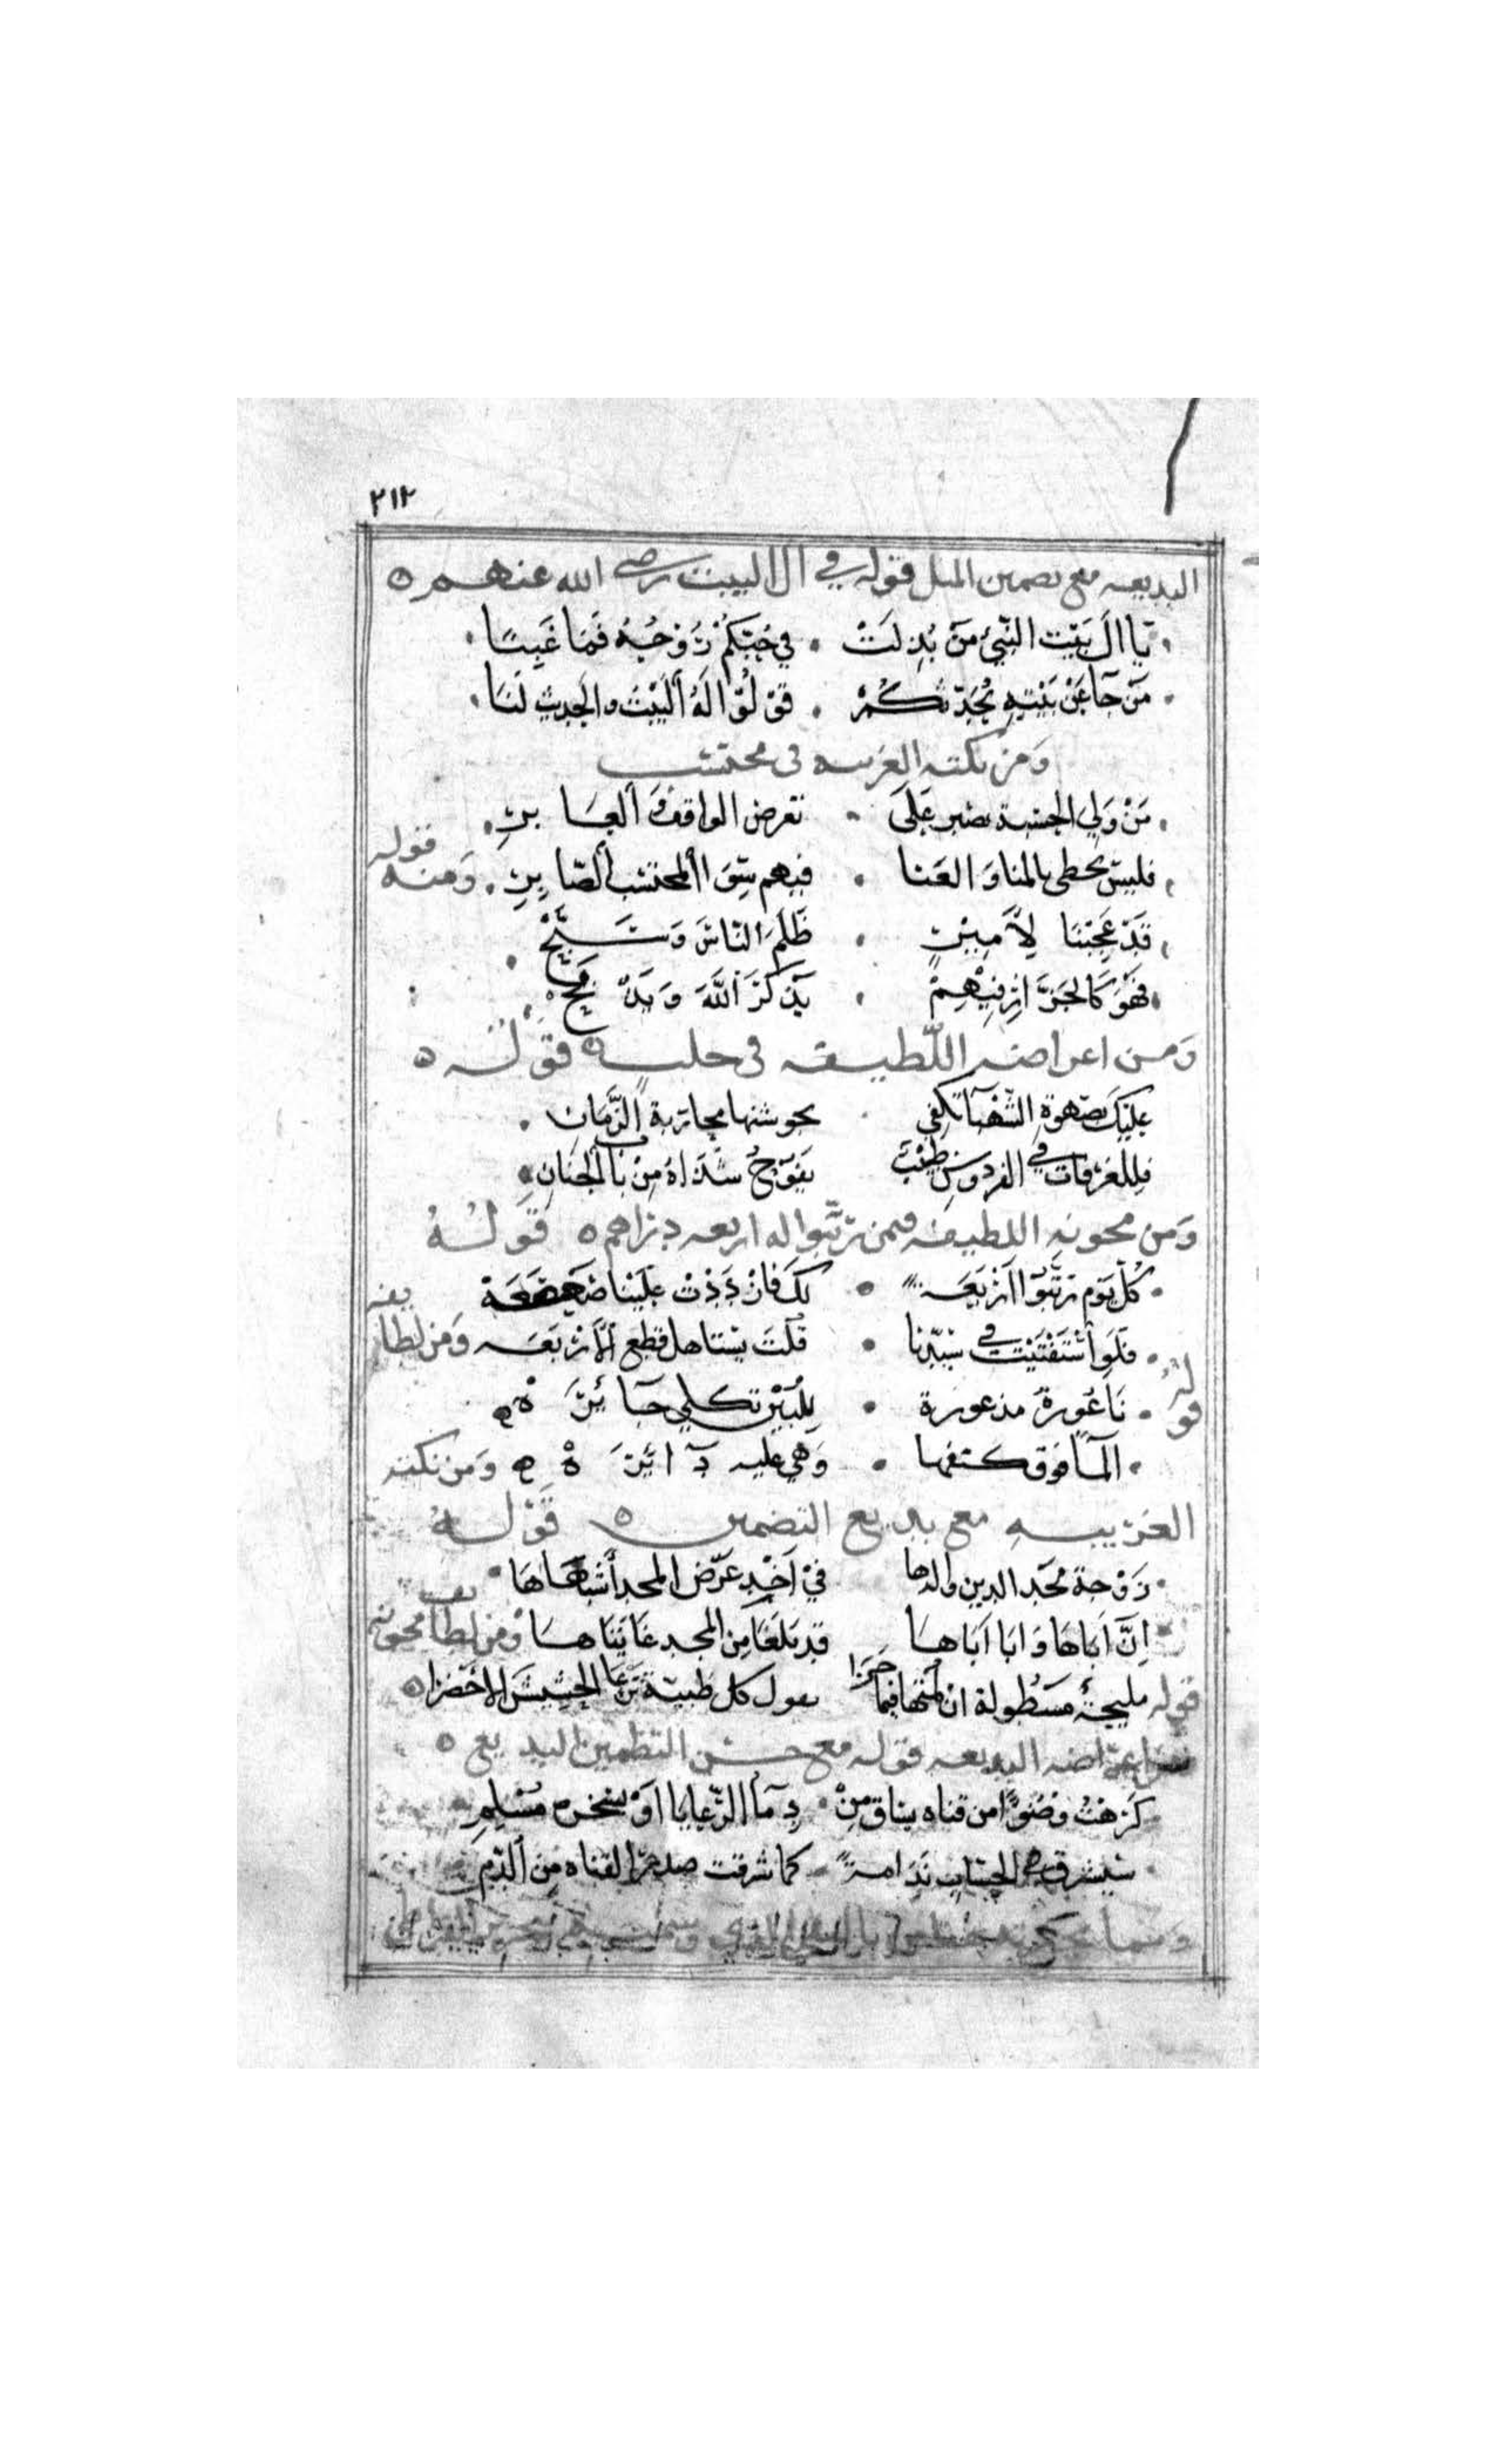 ٢١٢
البديعه مع تضمين المثل قوله في ال البيت رضي الله عنهم ه
يَا اٰلَ بَيْتِ النَّبِيْ مَنْ بُذِلَتْ . فِي حُبِّكُمْ رُوْحُهُ فَمَا غُبِنَا
مَنْ جَآ عَنْ بَيْتِهِ يُحَدِّثُكُمْ . قُوْلُوْا لَهُ الْبَيْتُ والحَدِيثُ لَنَا
وَمن نكته الغريبه فى محتسب
مَنْ وَلِيَ الحسبة يصبر عَلَى . تعرض الواقف وَالعَابِرِ
فليسَ يحظى بالمنا وَ الغنا . فيهم سِوَى المحتسب الصَّابِرِ . وَمنه قوله
قَدْ عَجِبْنَا لِأَمِيْرٍ . ظَلَمَ النَّاسَ وَسَبَّحْ
فَهْوَ كَالجَزَّارِ فِيْهِمْ . يَذْكُرُ اللهَ وَيَذْبَحْ
وَمن اغراضه اللطيفه فى حلب قَوْلُه ه
عليكَ بصَهْوَةِ الشَّهْبَا تكفي بجوشنها محاربة الزَّمَانِ
فللغرفات في الفردوس طِيْبٌ يَفُوْحُ شَذَاهُ مِنْ بَابِ الجِنَانِ
وَمن مجونه اللطيفه فيمن رتبوا له اربعه دراهم ه قَوْلُهُ
كُلَّ يَوْم رَتَّبُوْا أَرْبَعَةً . لَكَ فَازْدَدْتَ عَلَيْنَا ضَعْضَعَهْ
فَلَوِ اسْتَفْتَيْتَ في سَيِّدنا . قُلْتَ يستاهل قطع الأَرْبَعَه وَمن لطايفه
قوله نَاعُورَةٌ مذعورة . لِلْبَيْنِ تكلي حَآئِرَهْ
المآ فوق كتفها . وَهي عليه دَآئِرَهْ وَمن نكته
الغريبه مع بديع التضمين ه قَوْلهُ
زَوْجة مجد الدين والدها فيْ اَخْذِ عرْض المجد أَشبَاهَا
اِنَّ اَبَاهَا وَابَا اَبَاهَا قد بَلَغَا مِن المجد غَايَتَاهَا وَمن لطايف مجونه
قوله مليحةٌ مَسْطُولة ان لمتها فيما جَرَا تقول كل ظبية تَرْعَا الحَشِيْشَ الاخْضرَا
اغراضه البديعه قوله مع حسن التضمين البديع ه
كَرِهْتُ وضُوْءًا من قناه يساق مِنْ . دِمَآ الرَّعايا اَوْ مُسْلِمِ
سيشرق الحساب نَدَامةً كما شرقت صدر القناه مِن الدَّمِ